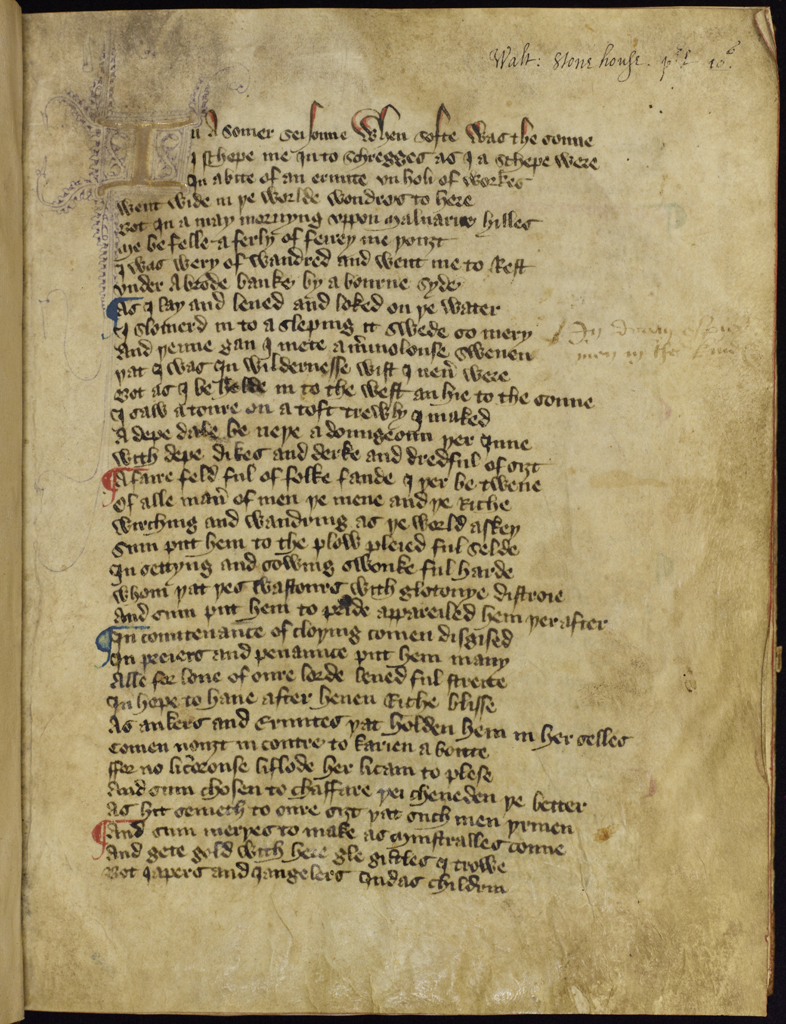 Walt: Stonehouse.
In A somer seisonne When softe Was the sonne
I schepe me Into schregges as I a schepe were
In abite of an ermite vnholi of workes
Went wide in þe worlde wondros to here
Bot In a may mornyng vppon maluarne hilles
Me be felle a ferly of feirey me þouȝt
I was wery of wandred and went me to Rest
vnder A brode banke by a bourne syde
As I lay and lened and loked on þe water
I slomerd in to a sleping it swede so mery
And þenne gan I mete a merueilouse sweuen
þat I was In wildernesse wist I neuer were
Bot as I be helde in to the west an hie to the sonne
I saw a toure on a toft trewly I maked
A depe dale be neþe a doungeoun þer Inne
With depe dikes and derke and dredful of siȝt
A faire feld ful of folke fande I þer be twene
Of alle maner of men þe mene and þe Riche
wirching and wandring as þe world askeþ
Sum putt hem to the plow pleied ful selde
In settyng and sowing swonke ful harde
whom þat þes wastours with glotonye distroie
And sum putt hem to pride appareiled hem þer after
In countenance of cloþing comen disgised
In preiers and penannce putt hem many
Alle for loue of oure lorde leued ful streite
In hope to haue after heuen Riche blisse
As ankers and Ermites þat holden hem in her selles
Comen nouȝt in contre to karien a boute
ffor no licerouse liflode her licam to plese
And sum chosen to chaffare þei cheueden þe better
As hit semeth to oure siȝt þat such men þriuen
And sum merþes to make as mynstralles conne
And gete gold with here gle giltles I trowe
Bot Iapers and Iangelers Iudas childrin